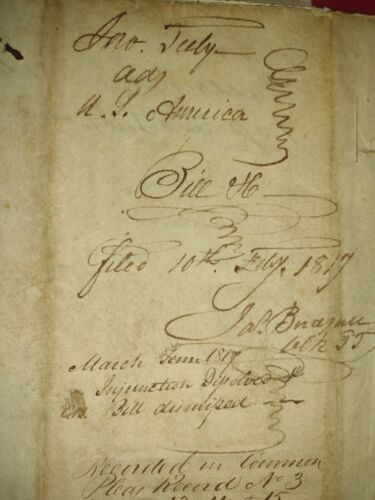 Jno. Tuly
ads
U. S. America
Bill &c
filed 10th Feby. 1817
Jas.
clk
March Term 1817
Injunction Disolved &
Bill dismissed
Recorded in Common
Pleas Record No 3